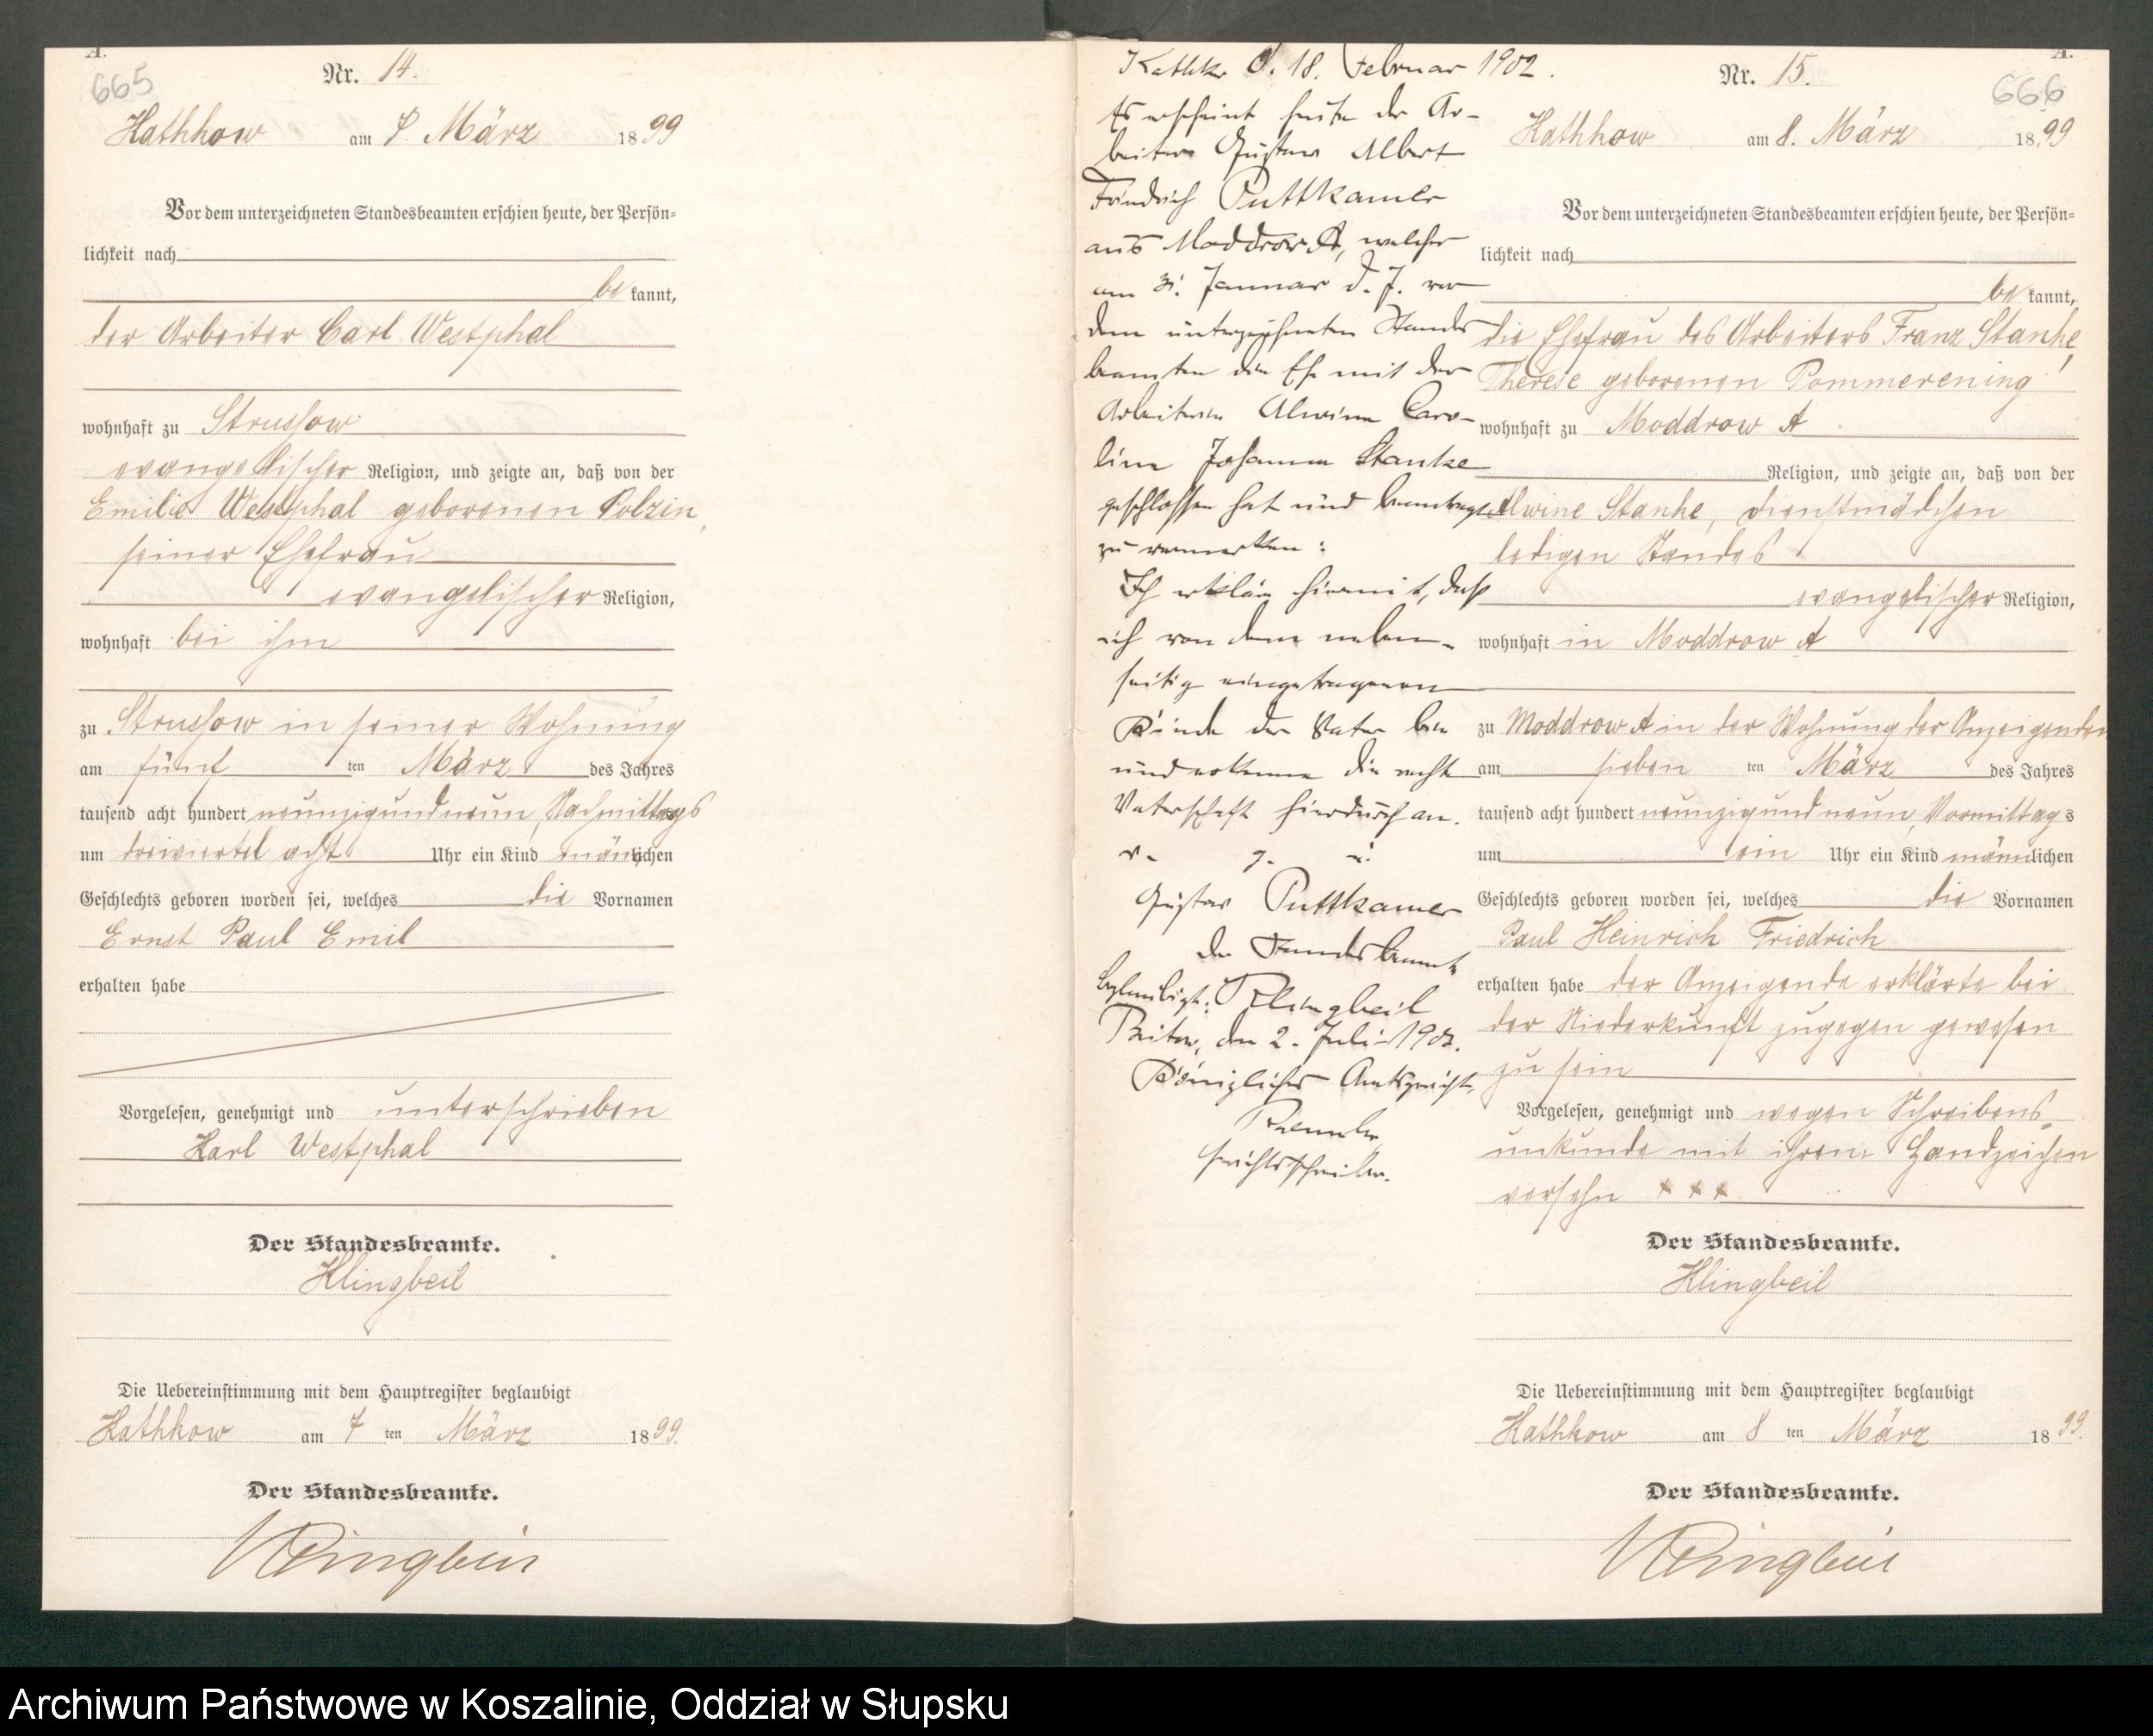 A.
665
Nr. 14.
Kathkow am 7. März 1899
Vor dem unterzeichneten Standesbeamten erschien heute, der Persön-
lichkeit nach
be kannt,
der Arbeiter Carl Westphal
wohnhaft zu Strussow
evangelischer Religion, und zeigte an, daß von der
Emilie Westphal geborenen Polzin,
seiner Ehefrau
evangelischer Religion,
wohnhaft bei ihm
zu Strussow in seiner Wohnung
am fünf ten März des Jahres
tausend acht hundert neunzigundneun, Nachmittags
um dreiviertel acht Uhr ein Kind männlichen
Geschlechts geboren worden sei, welches die Vornamen
Ernst Paul Emil
erhalten habe
Vorgelesen, genehmigt und unterschrieben
Karl Westphal
Der Standesbeamte.
Klingbeil
Die Uebereinstimmung mit dem Hauptregister beglaubigt
Kathkow am 7 ten März 1899.
Der Standesbeamte.
Klingbeil
Kathkow d. 18. Februar 1902.
Es erscheint heute der Ar-
beiter Gustav Albert
Friedrich Puttkamer
aus Moddrow A, welcher
am 31. Januar d. J. vor
dem unterzeichneten Standes
beamten die Ehe mit der
Arbeiterin Alwine Caro-
line Johanna Stanke
geschlossen hat und beantragt
zu vermerken:
Ich erkläre hiermit, daß
ich von dem neben-
seitig eingetragenen
Kinde der Vater bin
und erkenne die
Vaterschaft hierdurch an.
v. g. u.
Gustav Puttkamer
Der Standesbeamte
Beglaubigt: Klingbeil
Bütow, den 2. Juli 1902.
Königliches Amtsgericht,
Gerichtsschreiber.
A.
666
Nr. 15.
Kathkow am 8. März 1899
Vor dem unterzeichneten Standesbeamten erschien heute, der Persön-
lichkeit nach
be kannt,
die Ehefrau des Arbeiters Franz Stanke,
Therese geborenen Pommerening
wohnhaft zu Moddrow A
Religion, und zeigte an, daß von der
Alwine Stanke, Dienstmädchen
ledigen Standes
evangelischer Religion,
wohnhaft in Moddrow A
zu Moddrow A in der Wohnung der Anzeigenden
am sieben ten März des Jahres
tausend acht hundert neunzigundneun, Vormittags
um ein Uhr ein Kind männlichen
Geschlechts geboren worden sei, welches die Vornamen
Paul Heinrich Friedrich
erhalten habe der Anzeigende erklärte bei
der Niederkunft zugegen gewesen
zu sein
Vorgelesen, genehmigt und wegen Schreibens-
unkunde mit ihrem Handzeichen
versehn + + +
Der Standesbeamte.
Klingbeil
Die Uebereinstimmung mit dem Hauptregister beglaubigt
Kathkow am 8 ten März 1899.
Der Standesbeamte.
Klingbeil
Archiwum Państwowe w Koszalinie, Oddział w Słupsku